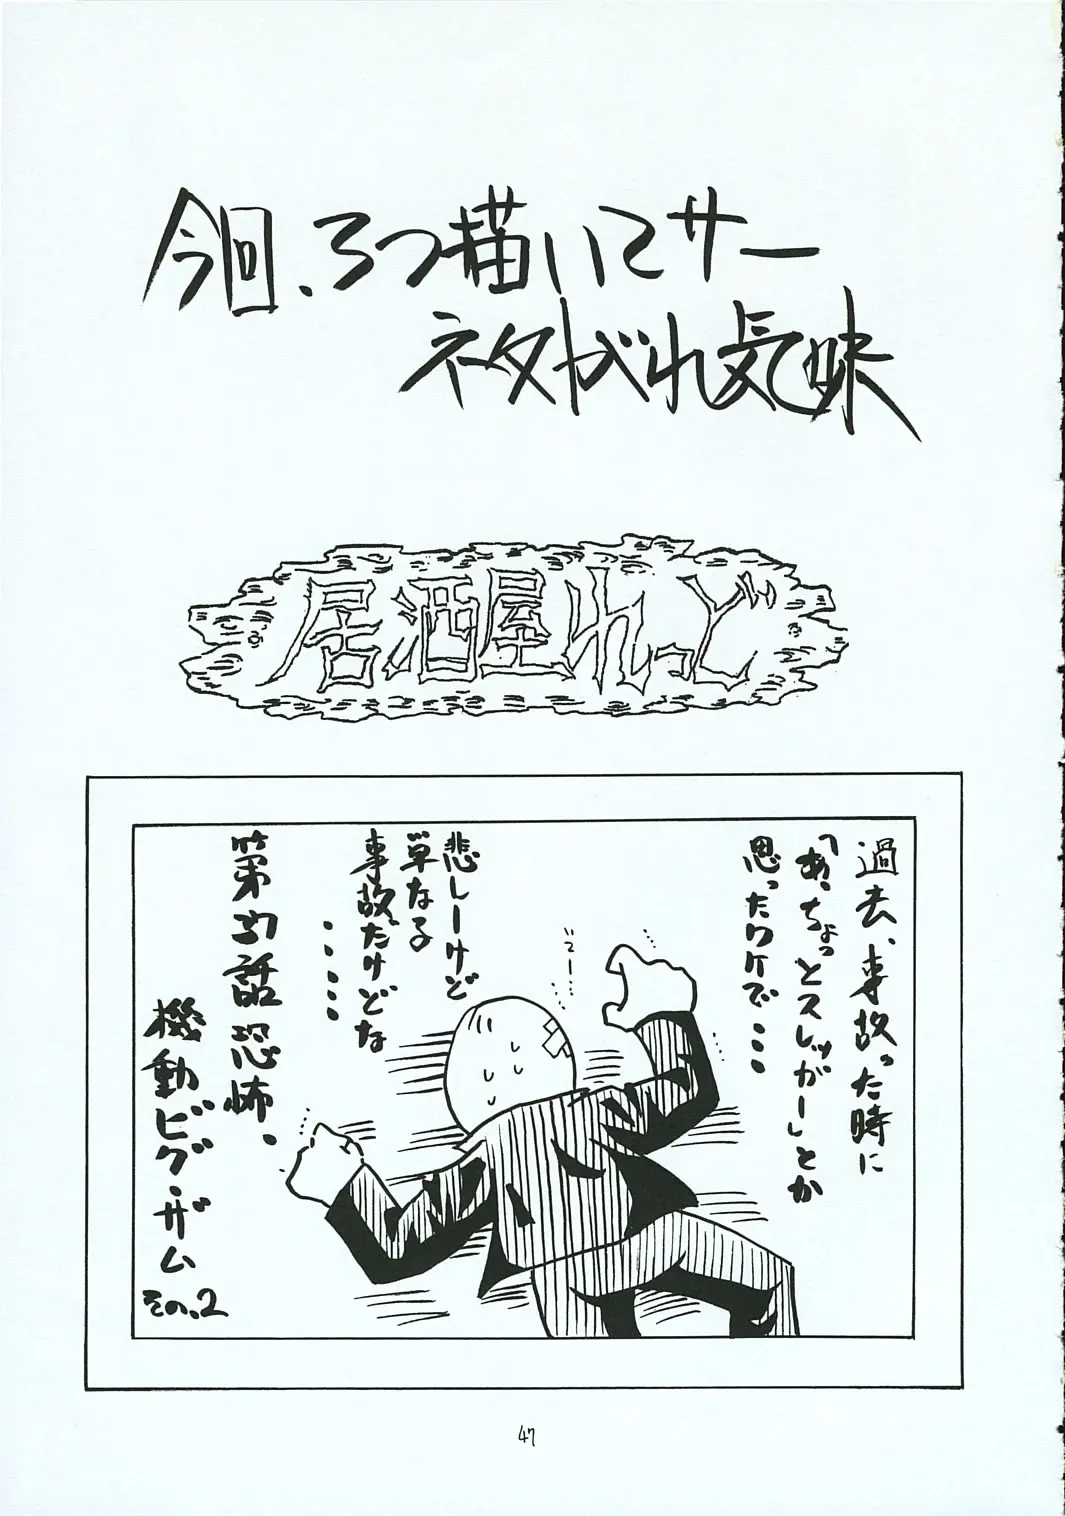 今回、3つ描いてサー
ネタがれ気味
居酒屋れっど
過去、事故った時に
「あ、ちょっとスレッガー」とか
思ったワケで…
じてー…
悲しーけど
単なる
事故だけどな
……
第37話恐怖、
機動ビグ・ザム
その、2
47